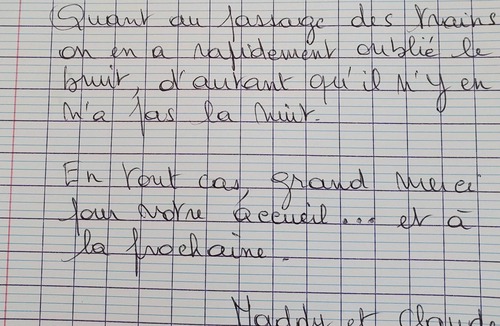 Quant au passage des trains
on en a rapidement oublié le
bruit, d'autant qu'il n'y en
n'a pas la nuit.
En tout cas, grand merci
pour votre accueil... et à
la prochaine.
Maddy et Claude